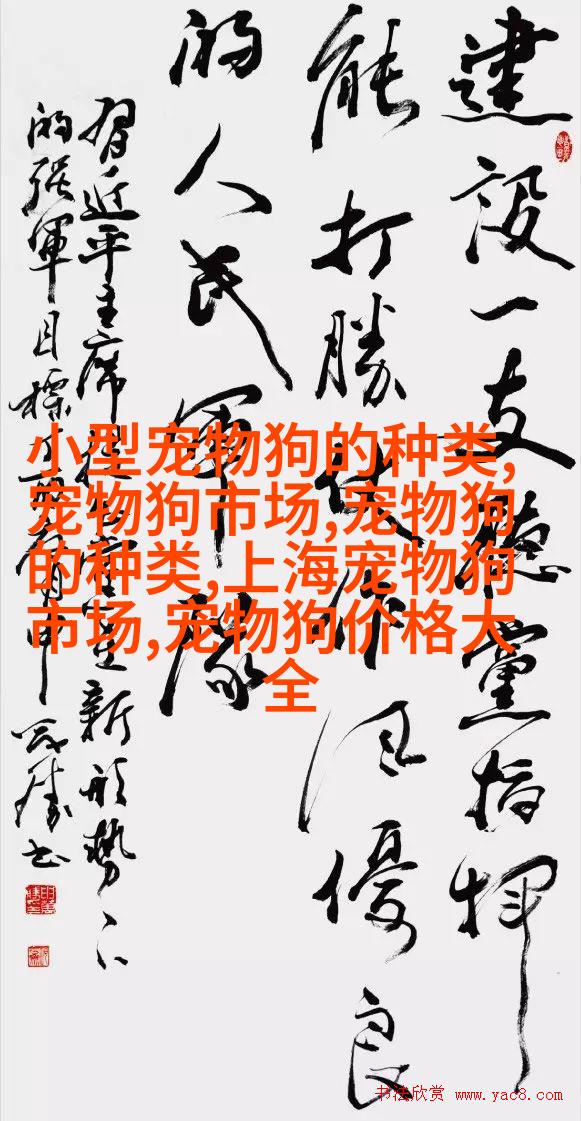 建設一支聽黨指揮
能打勝仗作风優良
的人民軍隊
習近平主席提新形勢下
的强軍目標
小型宠物狗的种类,
宠物狗市场,宠物狗
的种类,上海宠物狗
市场,宠物狗价格大
全
书法欣赏 www.yac8.com